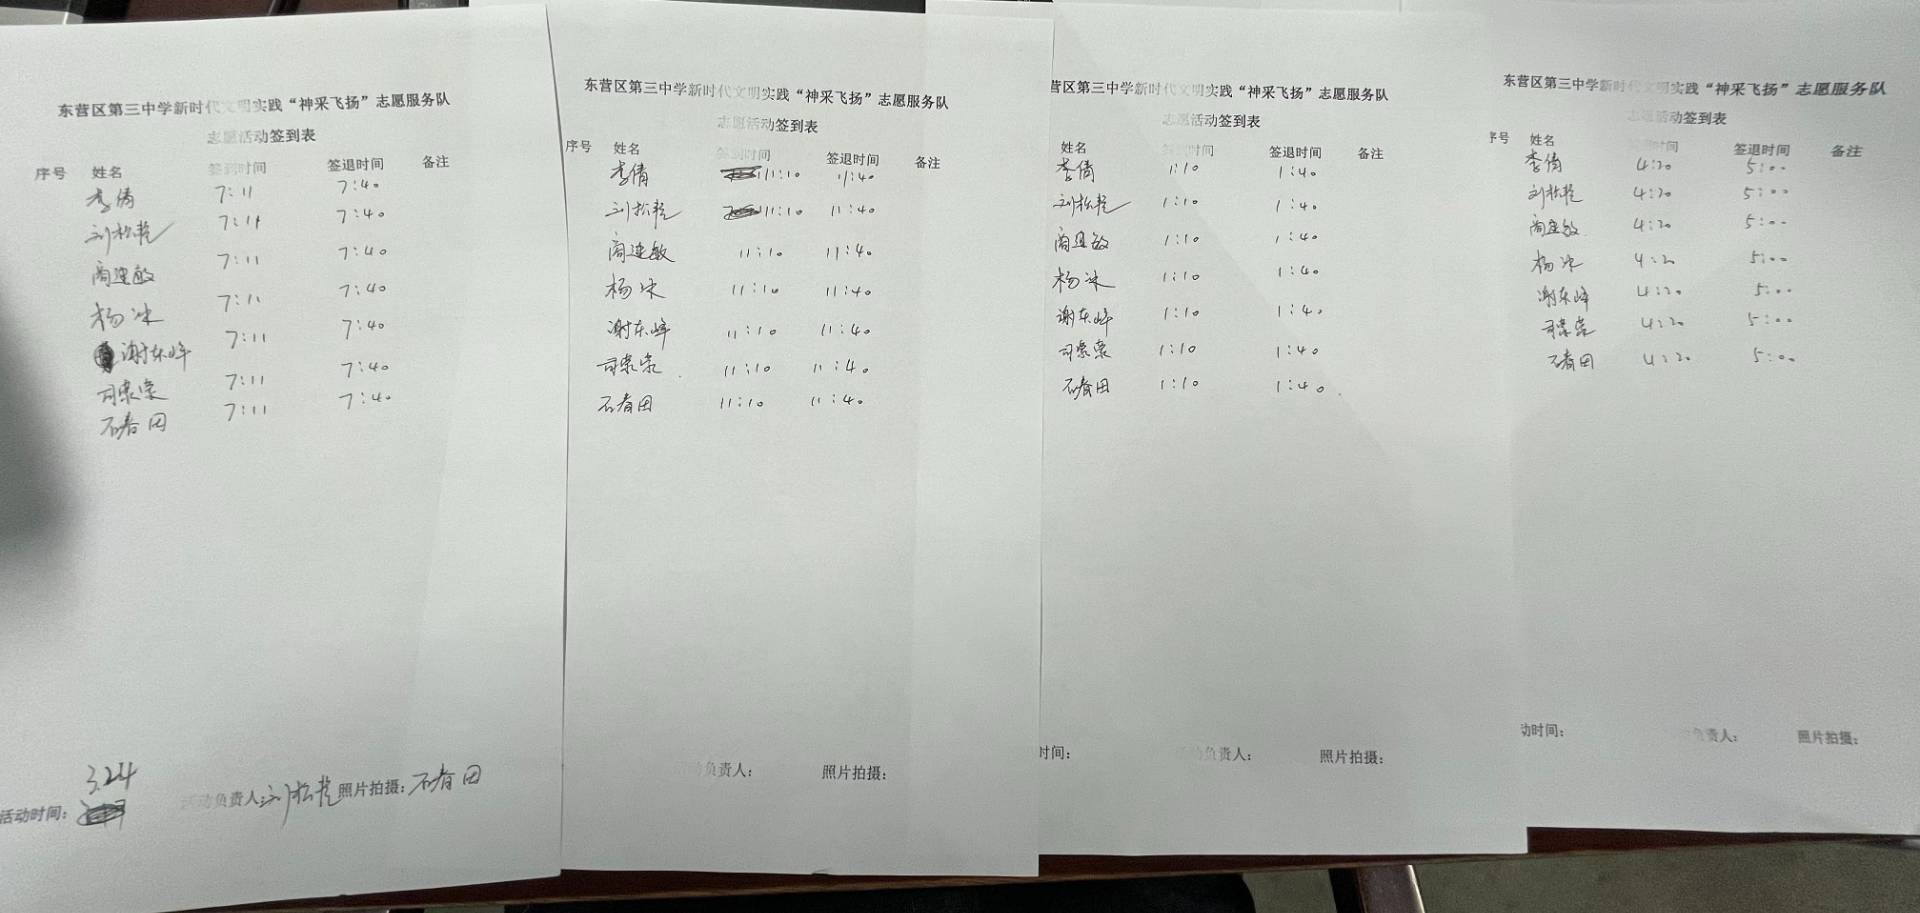 东营区第三中学新时代文明实践“神采飞扬”志愿服务队
志愿活动签到表
序号 姓名 签到时间 签退时间 备注
李倩 7:11 7:40
刘松艳 7:11 7:40
7:11 7:40
杨冰 7:11 7:40
谢东峰 7:11 7:40
7:11 7:40
石春田 7:11 7:40
3.24
活动时间: 活动负责人:刘松艳 照片拍摄:石春田
东营区第三中学新时代文明实践“神采飞扬”志愿服务队
志愿活动签到表
序号 姓名 签到时间 签退时间 备注
李倩 11:10 11:40
刘松艳 11:10 11:40
11:10 11:40
杨冰 11:10 11:40
谢东峰 11:10 11:40
11:10 11:40
石春田 11:10 11:40
活动负责人: 照片拍摄:
营区第三中学新时代文明实践“神采飞扬”志愿服务队
志愿活动签到表
姓名 签到时间 签退时间 备注
李倩 1:10 1:40
刘松艳 1:10 1:40
1:10 1:40
杨冰 1:10 1:40
谢东峰 1:10 1:40
1:10 1:40
石春田 1:10 1:40
时间: 活动负责人: 照片拍摄:
东营区第三中学新时代文明实践“神采飞扬”志愿服务队
志愿活动签到表
序号 姓名 签到时间 签退时间 备注
李倩 4:20 5:00
刘松艳 4:20 5:00
4:20 5:00
杨冰 4:20 5:00
谢东峰 4:20 5:00
4:20 5:00
石春田 4:20 5:00
动时间: 负责人: 照片拍摄: